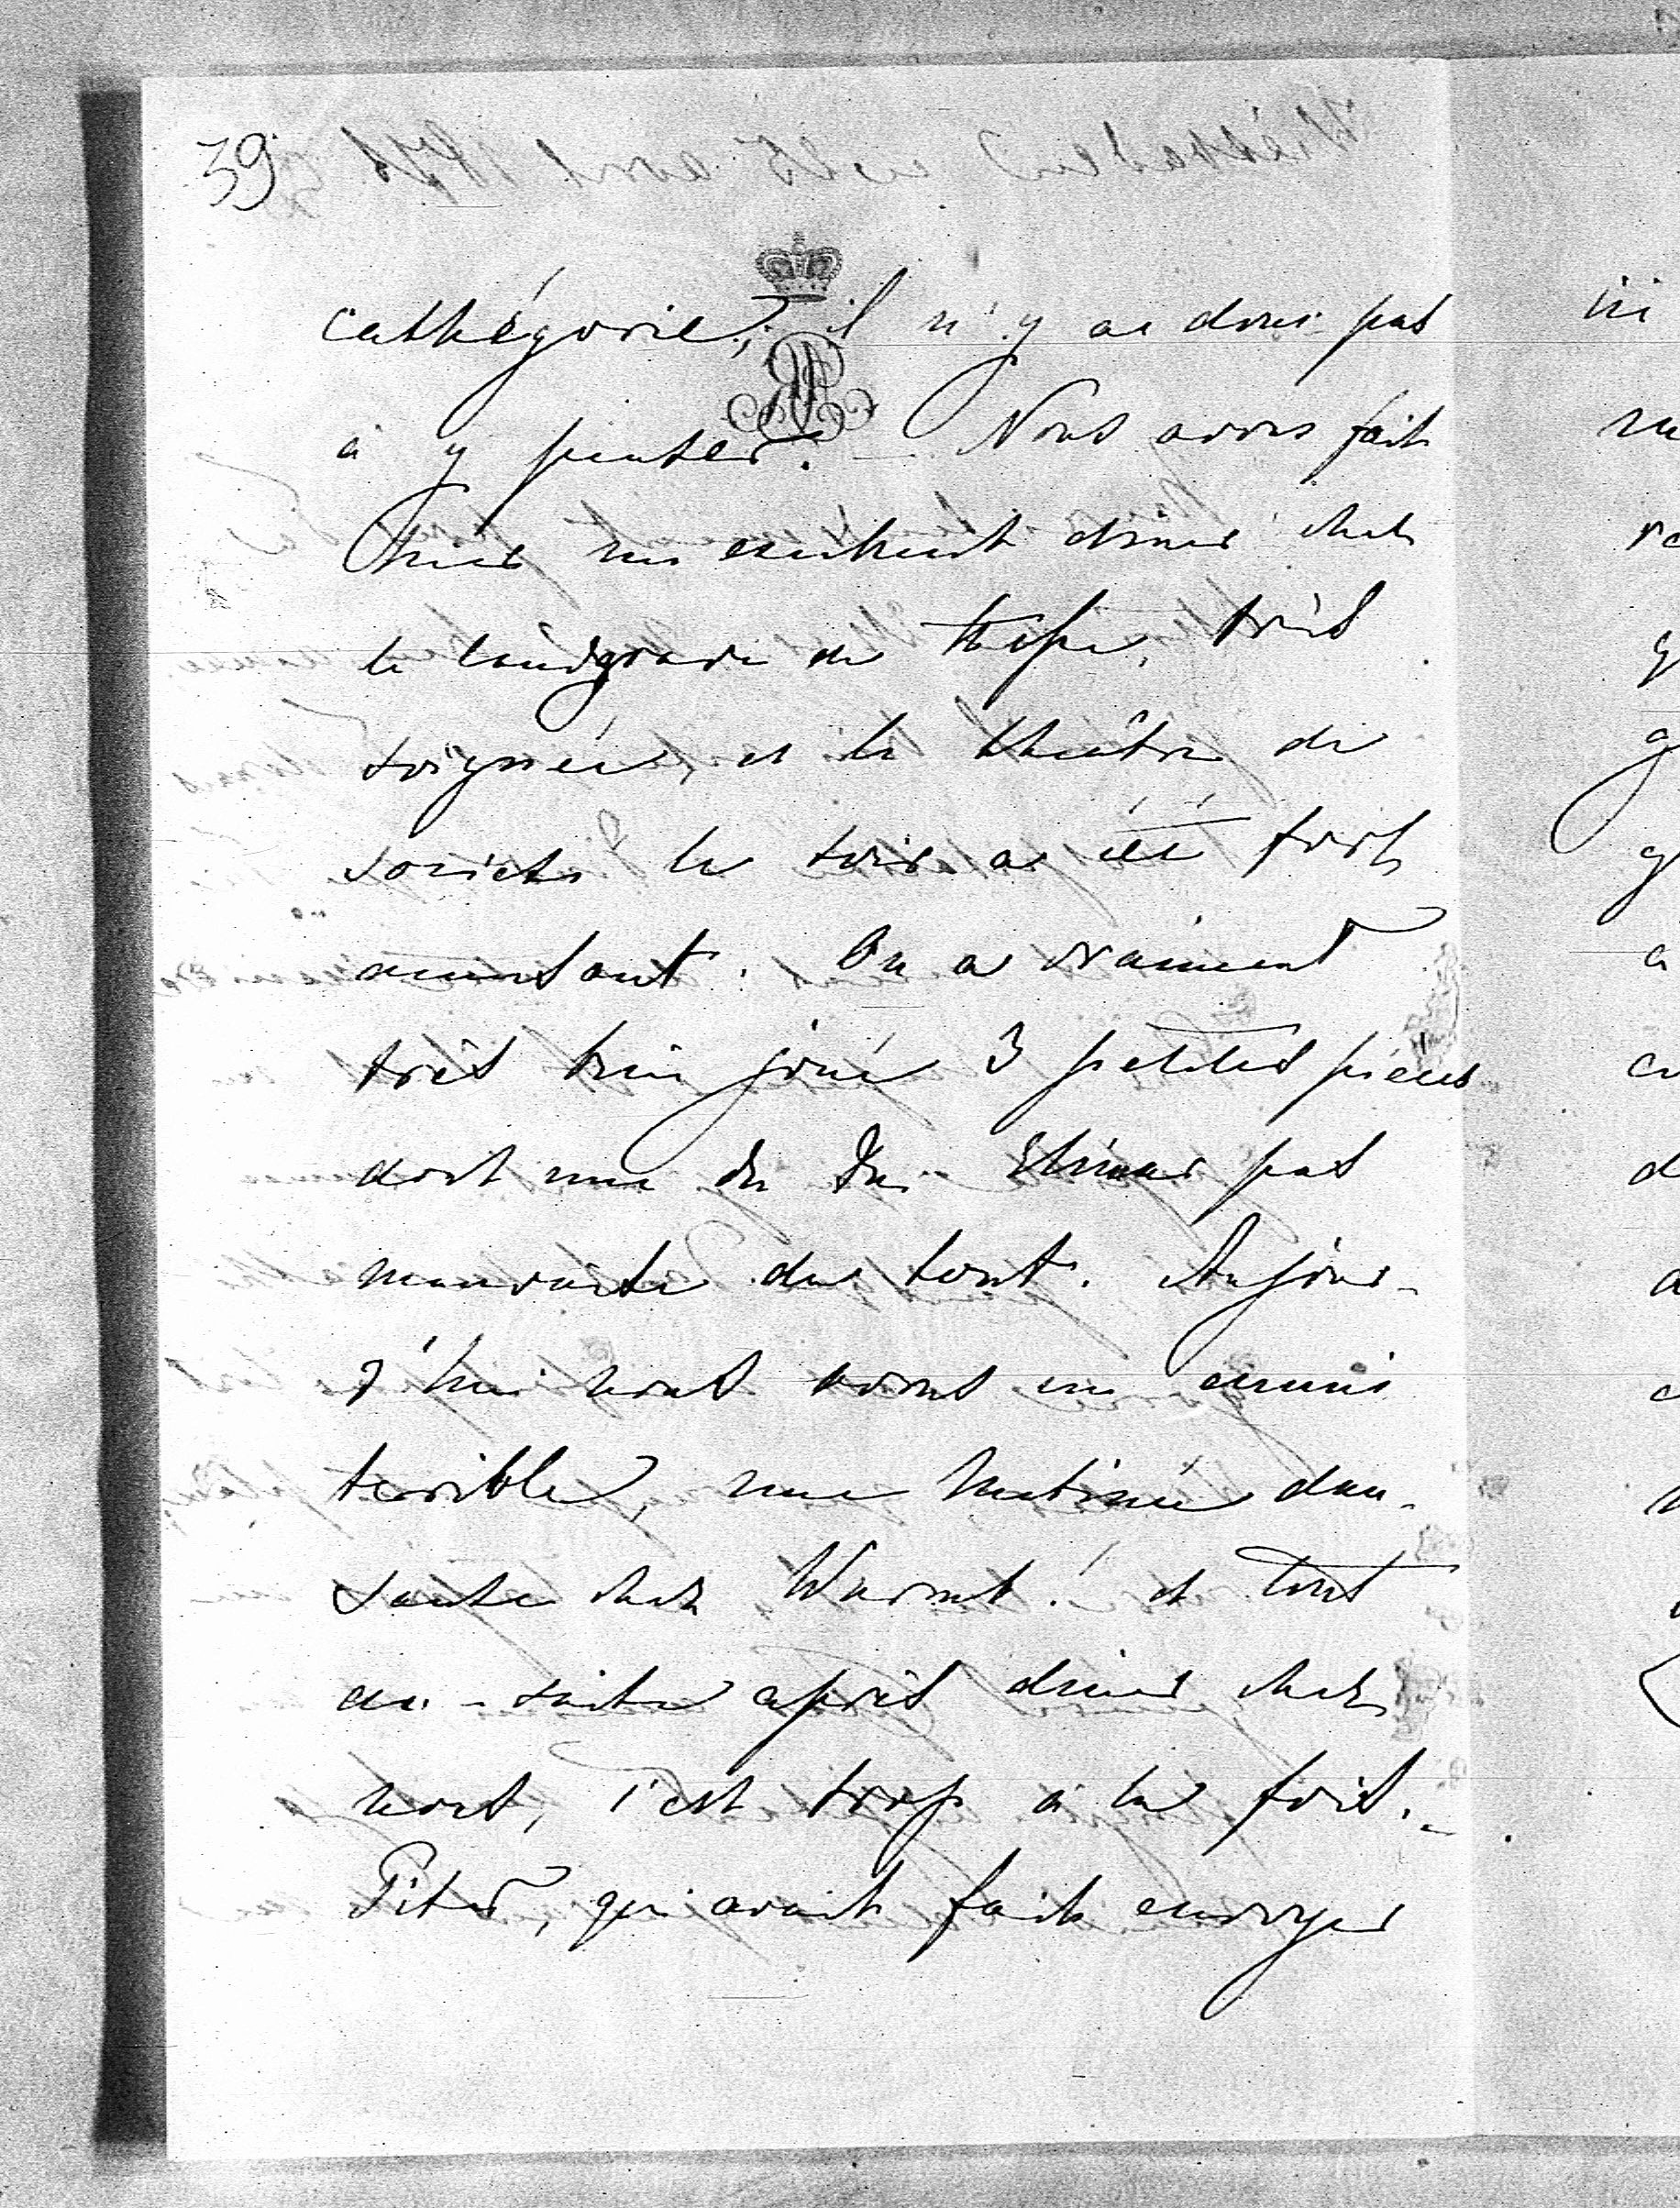 39
cathégorie, il n'y a donc pas
à y penser. — Nous avons fait
hier un excellent diner chez
le landgrave de Hesse, très
soignée, et le théâtre de
société le soir a été fort
amusant. On a vraiment
très bien joué 3 petites pièces
dont une du Duc Elimar pas
mauvaise du tout. Aujour-
d'hui nous avons un ennui
terrible, une Matinée dan-
sante chez Wurmb! et tout
de-suite après diner chez
nous, c'est trop à la fois. —
Piter, qui avait fait envoyer